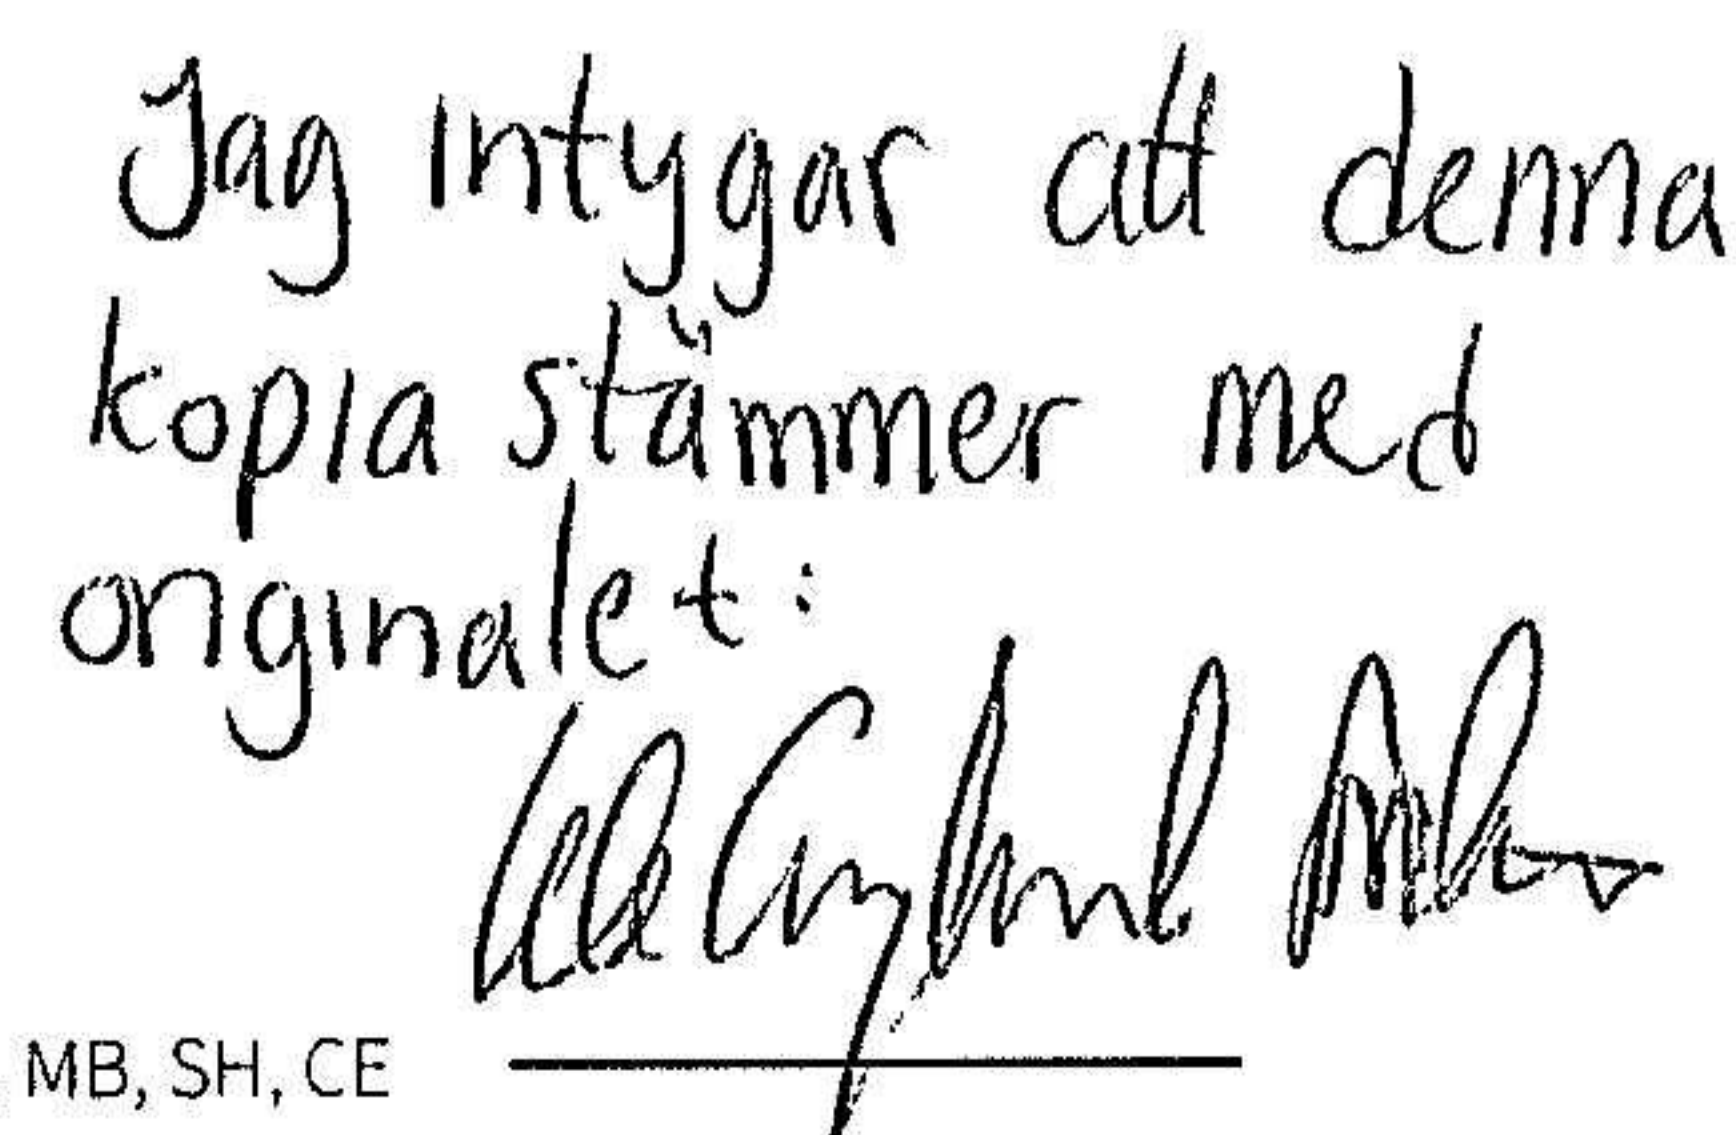 Jag intygar att denna
kopia stämmer med
originalet:
MB, SH, CE